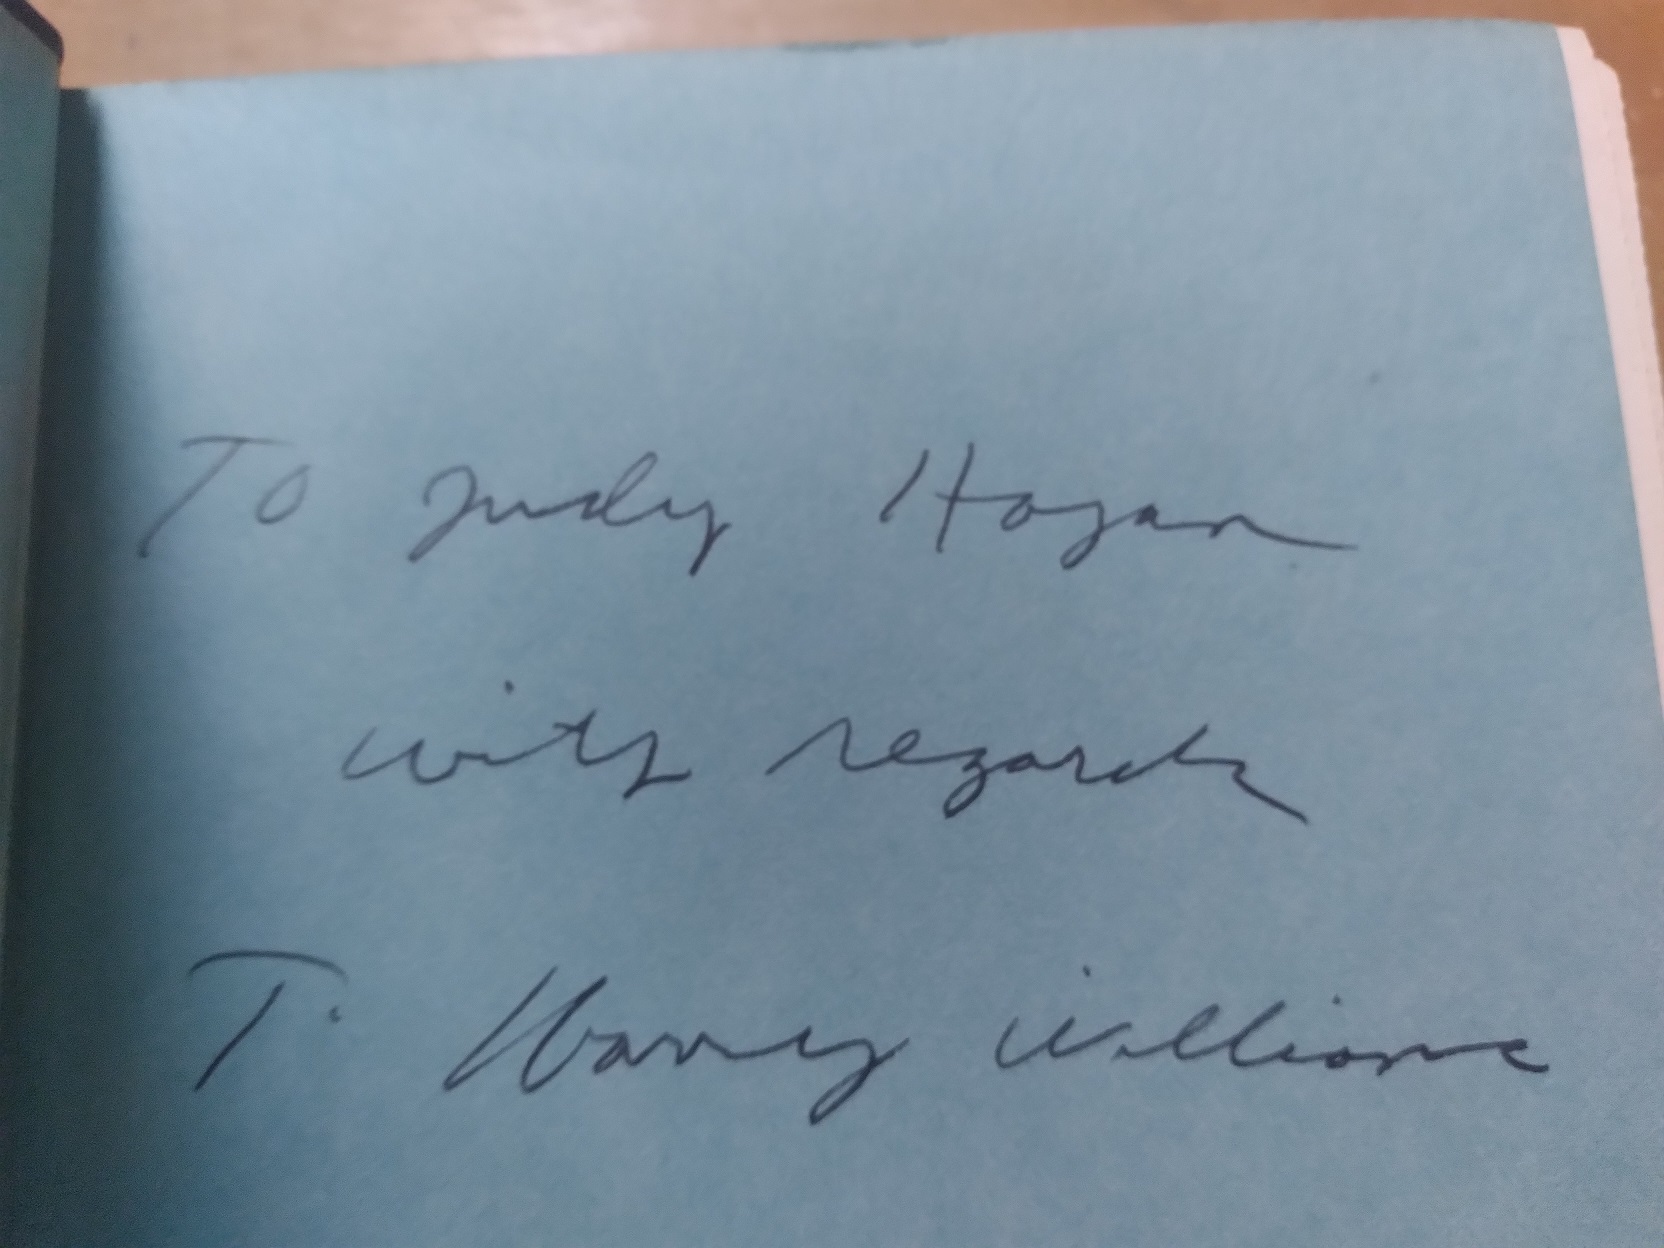 To Judy Hogan
with regards
T. Harry Williams